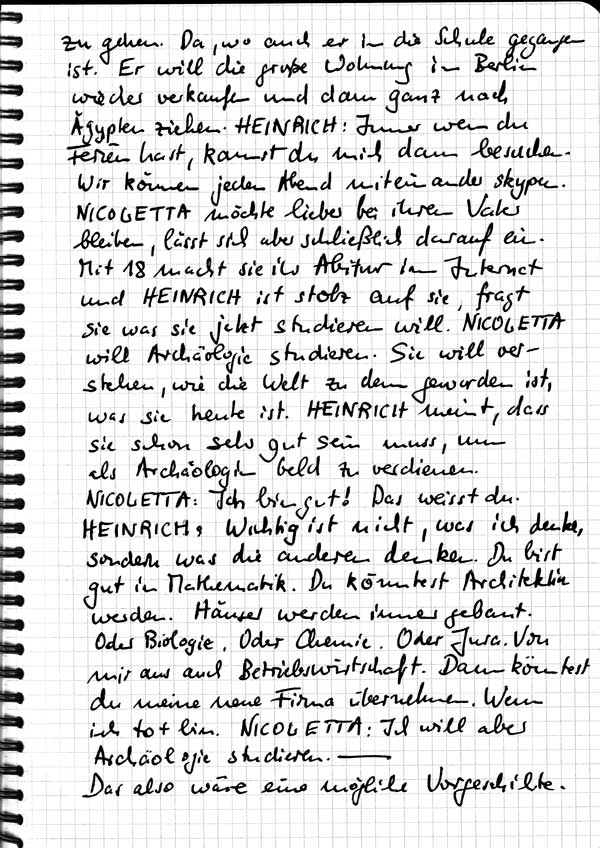 zu gehen. Da, wo auch er in die Schule gegangen
ist. Er will die große Wohnung in Berlin
wieder verkaufen und dann ganz nach
Ägypten ziehen. HEINRICH: Immer wenn du
Ferien hast, kannst du mich dann besuchen.
Wir können jeden Abend miteinander skypen.
NICOLETTA möchte lieber bei ihrem Vater
bleiben, lässt sich aber schließlich darauf ein.
Mit 18 macht sie ihr Abitur im Internet
und HEINRICH ist stolz auf sie, fragt
sie was sie jetzt studieren will. NICOLETTA
will Archäologie studieren. Sie will ver-
stehen, wie die Welt zu dem geworden ist,
was sie heute ist. HEINRICH meint, dass
sie schon sehr gut sein muss, um
als Archäologin Geld zu verdienen.
NICOLETTA: Ich bin gut! Das weisst du.
HEINRICH: Wichtig ist nicht, was ich denke,
sondern was die anderen denken. Du bist
gut in Mathematik. Du könntest Architektin
werden. Häuser werden immer gebaut.
Oder Biologie. Oder Chemie. Oder Jura. Von
mir aus auch Betriebswirtschaft. Dann könntest
du meine neue Firma übernehmen. Wenn
ich tot bin. NICOLETTA: Ich will aber
Archäologie studieren. —
Das also wäre eine mögliche Vorgeschichte.